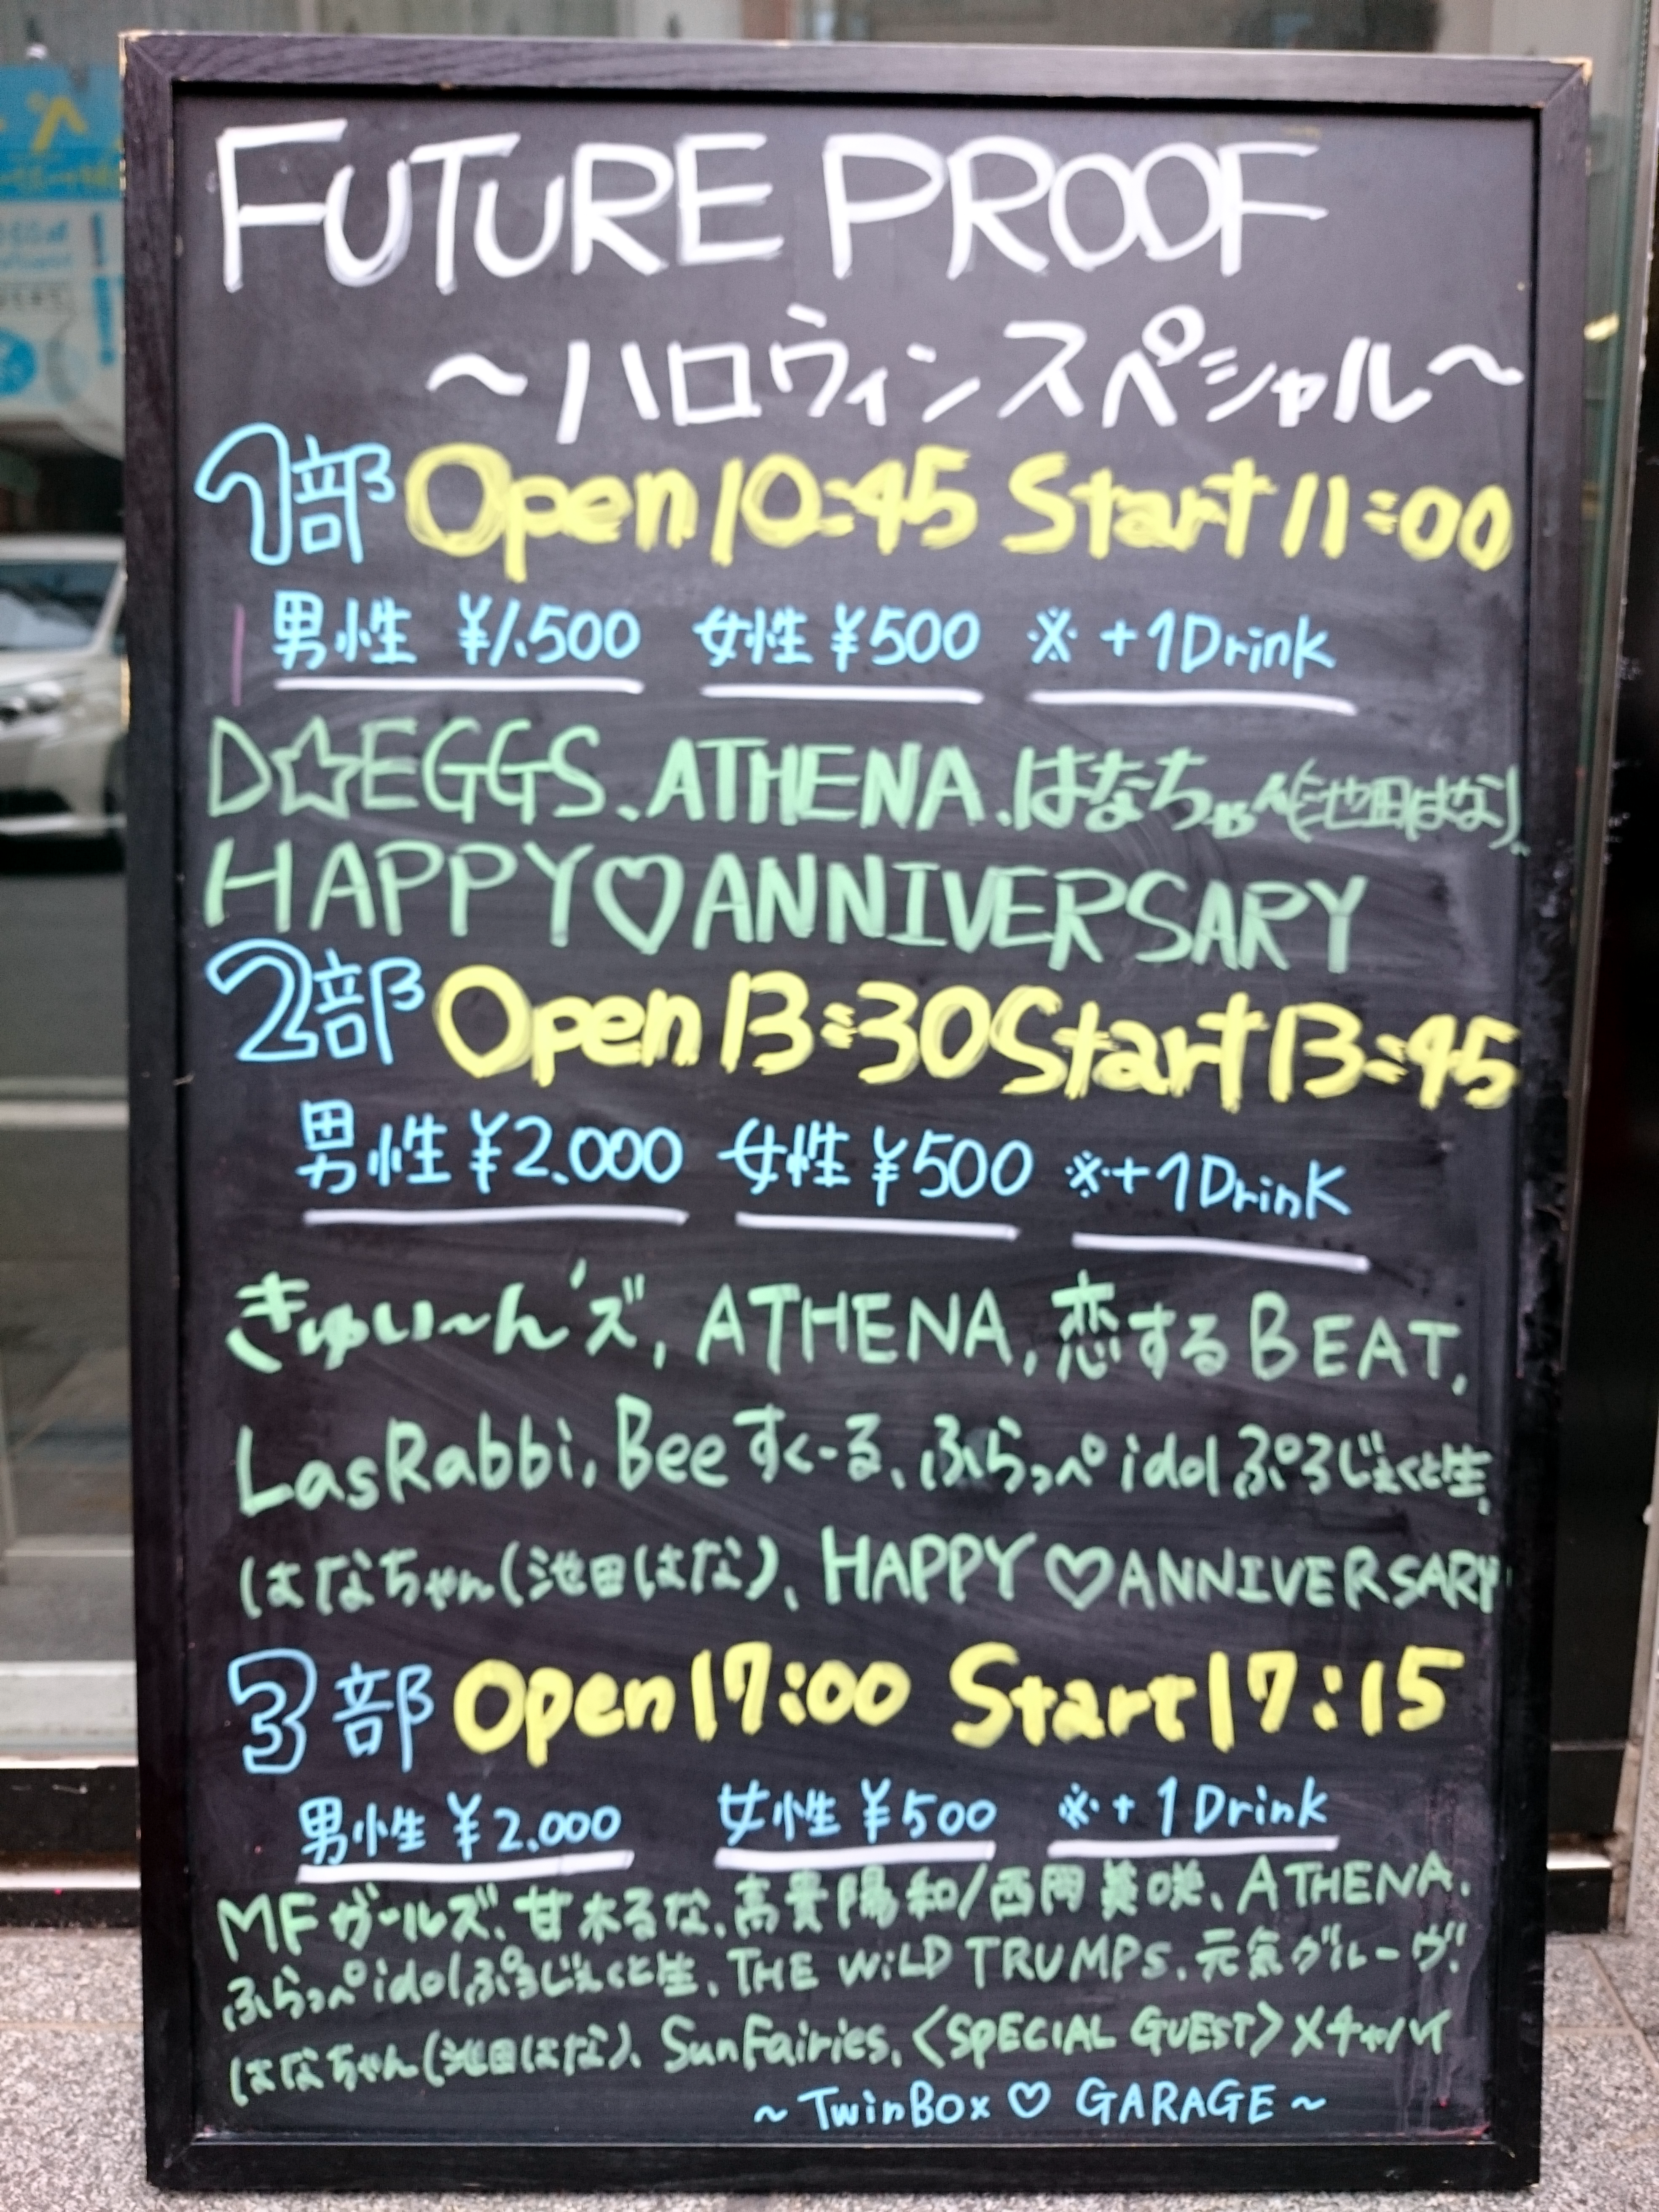 FUTURE PROOF
～ハロウィンスペシャル～
1部 Open 10:45 Start 11:00
男性 ¥1.500 女性 ¥500 ※+1Drink
D☆EGGS、ATHENA、はなちゃん(池田はな)、
HAPPY♡ANNIVERSARY
2部 Open 13:30 Start 13:45
男性 ¥2.000 女性 ¥500 ※+1Drink
きゅい〜ん'ズ, ATHENA, 恋するBEAT,
LasRabbi, Beeすくーる、ふらっぺidolぷろじぇくと生、
はなちゃん(池田はな)、HAPPY♡ANNIVERSARY
3部 Open 17:00 Start 17:15
男性 ¥2.000 女性 ¥500 ※+1Drink
MFガールズ、甘木るな、高貴陽和/西岡美咲、ATHENA、
ふらっぺidolぷろじぇくと生、THE WiLD TRUMPs、元気グルーヴ!
はなちゃん(池田はな)、SunFairies、〈SPECIAL GUEST〉メチャハイ
～TwinBox♡GARAGE～